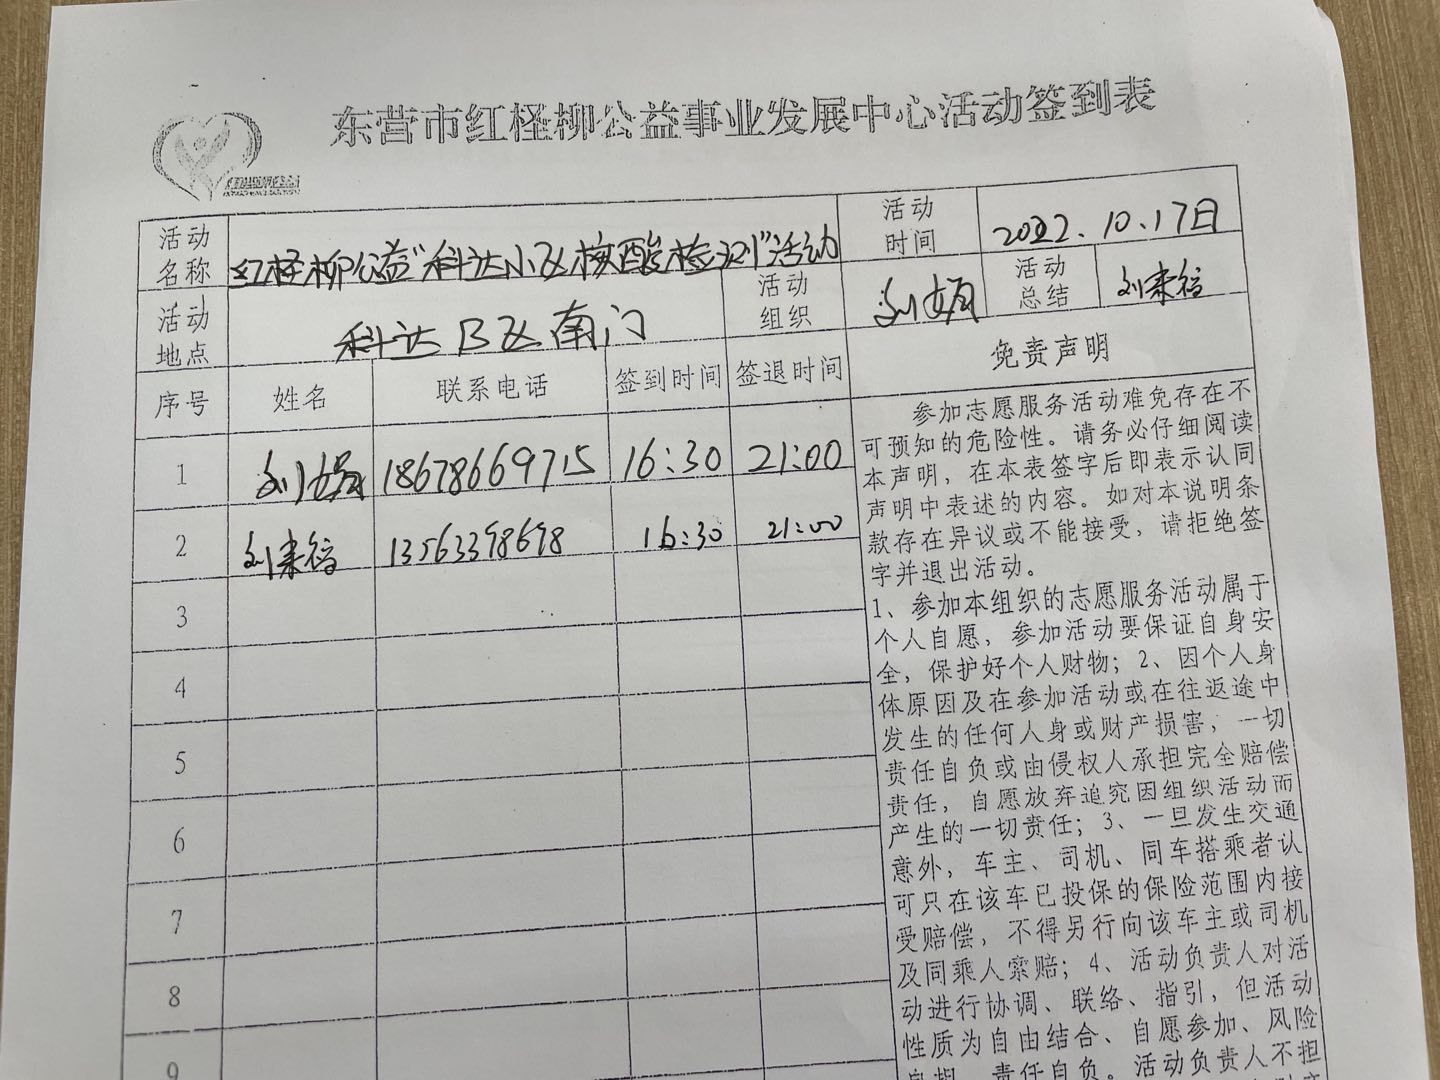 东营市红柽柳公益事业发展中心活动签到表
活动名称 红柽柳公益“科达小区核酸检测”活动 活动时间 2022.10.17日
活动地点 科达B区南门 活动组织 刘娟 活动总结 刘来信
序号 姓名 联系电话 签到时间 签退时间 免责声明
1 刘娟 18678669715 16:30 21:00
2 刘来信 13563398698 16:30 21:00
3
4
5
6
7
8
9
参加志愿服务活动难免存在不
可预知的危险性。请务必仔细阅读
本声明，在本表签字后即表示认同
声明中表述的内容。如对本说明条
款存在异议或不能接受，请拒绝签
字并退出活动。
1、参加本组织的志愿服务活动属于
个人自愿，参加活动要保证自身安
全，保护好个人财物；2、因个人身
体原因及在参加活动或在往返途中
发生的任何人身或财产损害，一切
责任自负或由侵权人承担完全赔偿
责任，自愿放弃追究因组织活动而
产生的一切责任；3、一旦发生交通
意外，车主、司机、同车搭乘者认
可只在该车已投保的保险范围内接
受赔偿，不得另行向该车主或司机
及同乘人索赔；4、活动负责人对活
动进行协调、联络、指引，但活动
性质为自由结合、自愿参加、风险
自担、责任自负。活动负责人不担